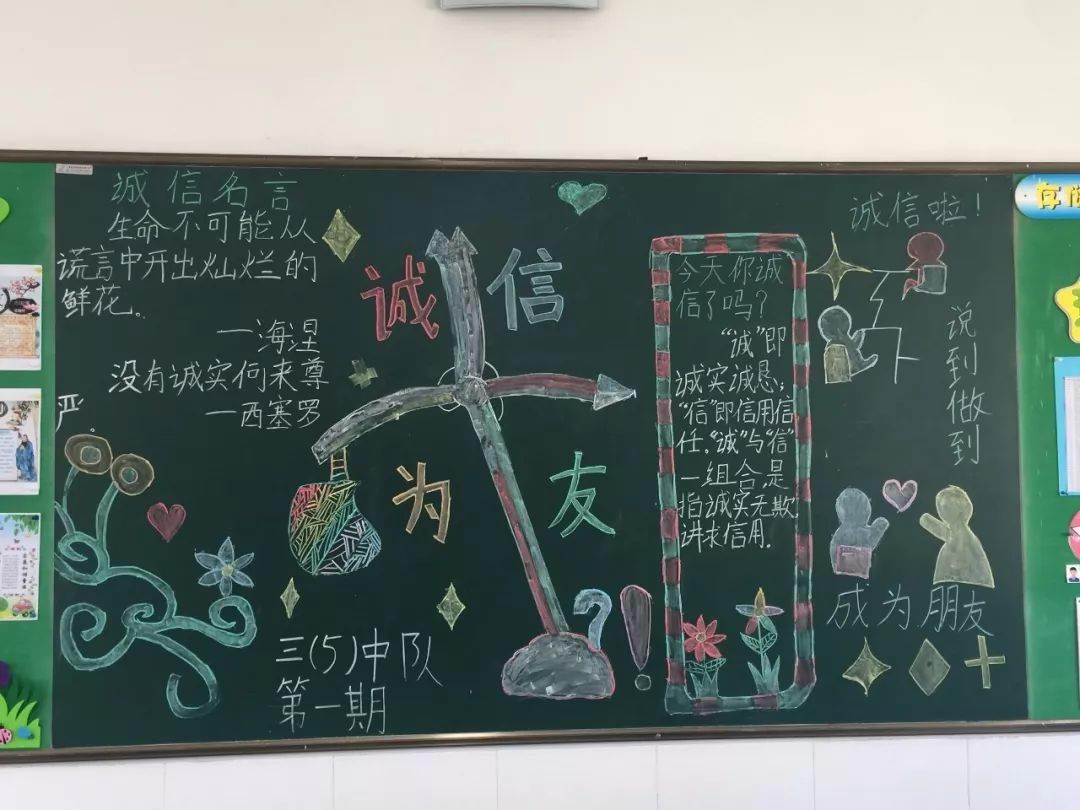 诚信名言
生命不可能从
谎言中开出灿烂的
鲜花。
—海涅
没有诚实何来尊
严。
—西塞罗
诚信
为友
三(5)中队
第一期
?!
今天你诚
信了吗?
“诚”即
诚实诚恳;
“信”即信用信
任.“诚”与“信”
一组合是
指诚实无欺
讲求信用.
诚信啦!
说到做到
成为朋友